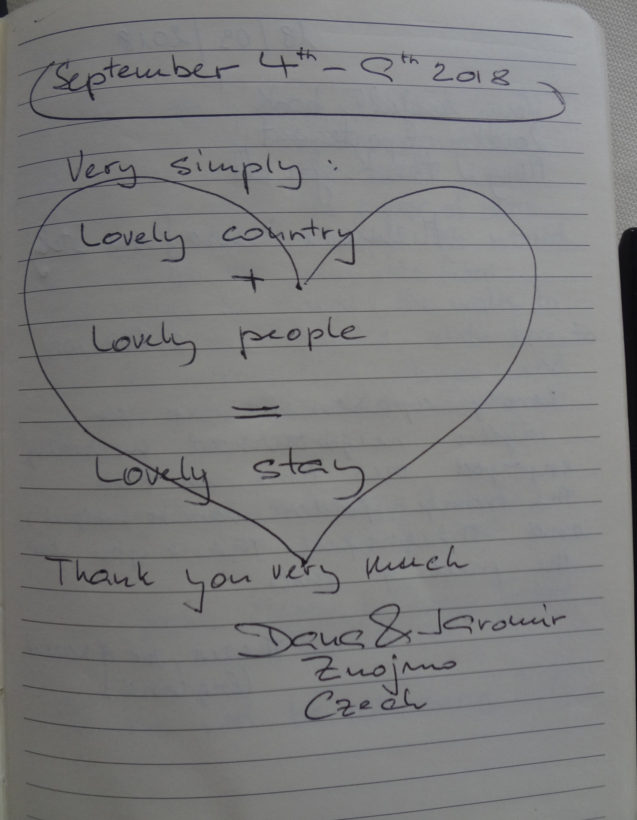 September 4th - 9th 2018
Very simply :
Lovely country
+
Lovely people
=
Lovely stay
Thank you very much
Dana & Jaromir
Znojmo
Czech